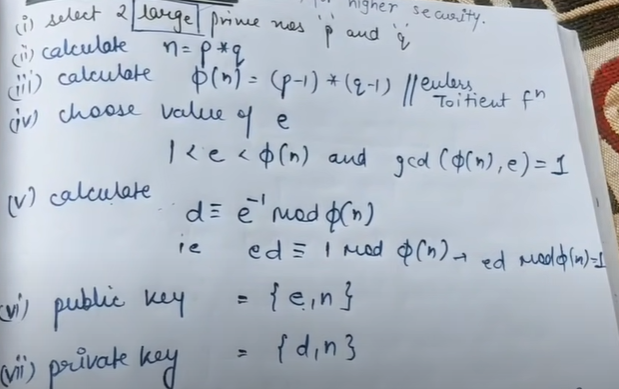 higher security.
(i) select 2 large prime nos 'p' and 'q'
(ii) calculate n = p * q
(iii) calculate ϕ(n) = (p-1) * (q-1) // eulers
Toitient fⁿ
(iv) choose value of e
1 < e < ϕ(n) and gcd (ϕ(n), e) = 1
(v) calculate
d ≡ e⁻¹ mod ϕ(n)
ie ed ≡ 1 mod ϕ(n) → ed mod ϕ(n) = 1
(vi) public key = {e, n}
(vii) private key = {d, n}